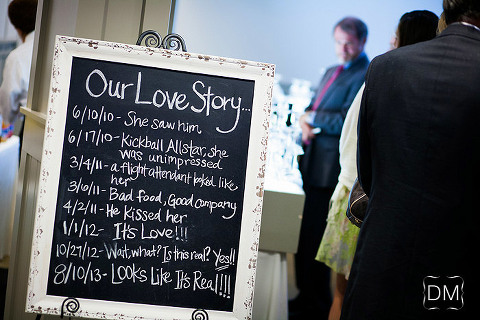 Our Love Story...
6/10/10- She saw him
6/17/10- Kickball Allstar, she
was unimpressed
3/4/11- a flight attendant looked like
her
3/6/11- Bad food, Good company
4/2/11- He kissed her
1/1/12- It's Love!!!
10/27/12- Wait, what? Is this real? Yes!!
8/10/13- Looks Like It's Real!!!!
DM